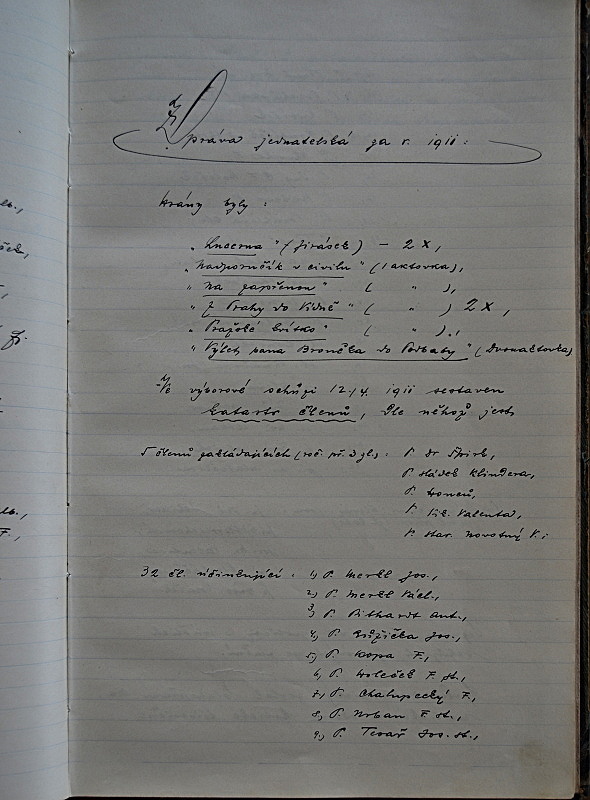 Zpráva jednatelská za r. 1911:
Hrány byly:
„Lucerna" (Jirásek) – 2 x,
„Nadporučík v civilu" (1 aktovka),
„Na zapřenou" ( " ),
„Z Prahy do Vídně" ( " ) 2 x,
„Pražské kvítko" ( " ),
„Výlet pana Broučka do Podbaby" (Dvouaktovka)
Ve výborové schůzi 12./4. 1911 sestaven
katastr členů, dle něhož jest
5 členů zakládajících (roč. př. 3 zl.): P. Dr
P. sládek Klindera,
P.
P. Valenta,
P. star. Novotný V.;
32 čl. účinkující: 1,) P. Merkl Jos.,
2,) P. Merkl
3,) P. Pithardt Ant.,
4,) P. Růžička Jos.,
5,) P. Kopa F.,
6,) P. Holeček F. st.,
7,) P. Chalupecký F.,
8,) P. Urban F. st.,
9,) P. Tovař Jos. st.,